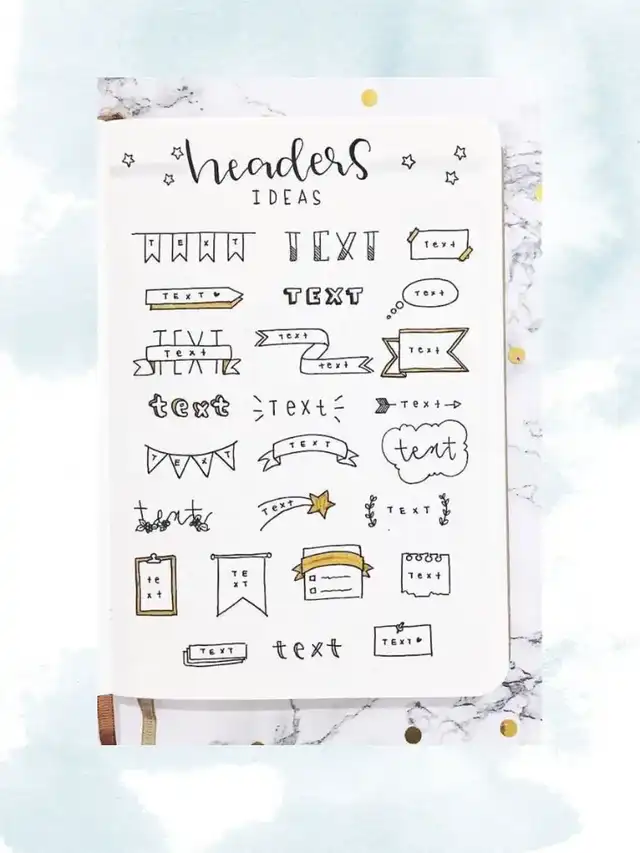 headers
IDEAS
TEXT TEXT Text
TEXT ♥ TEXT Text
TEXT Text text text Text
text Text Text
TEXT TEXT text
text Text TEXT
te TE Text
xt XT
TEXT text TEXT ♥